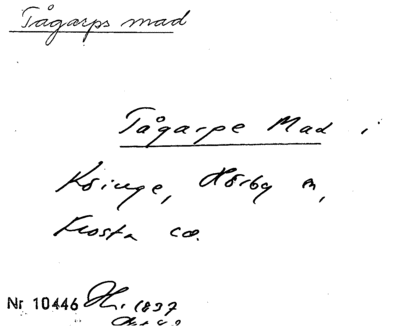 Tågarps mad
Tågarps Mad i
Köinge, Hörby sn,
Frosta co.
Nr 10446 1837